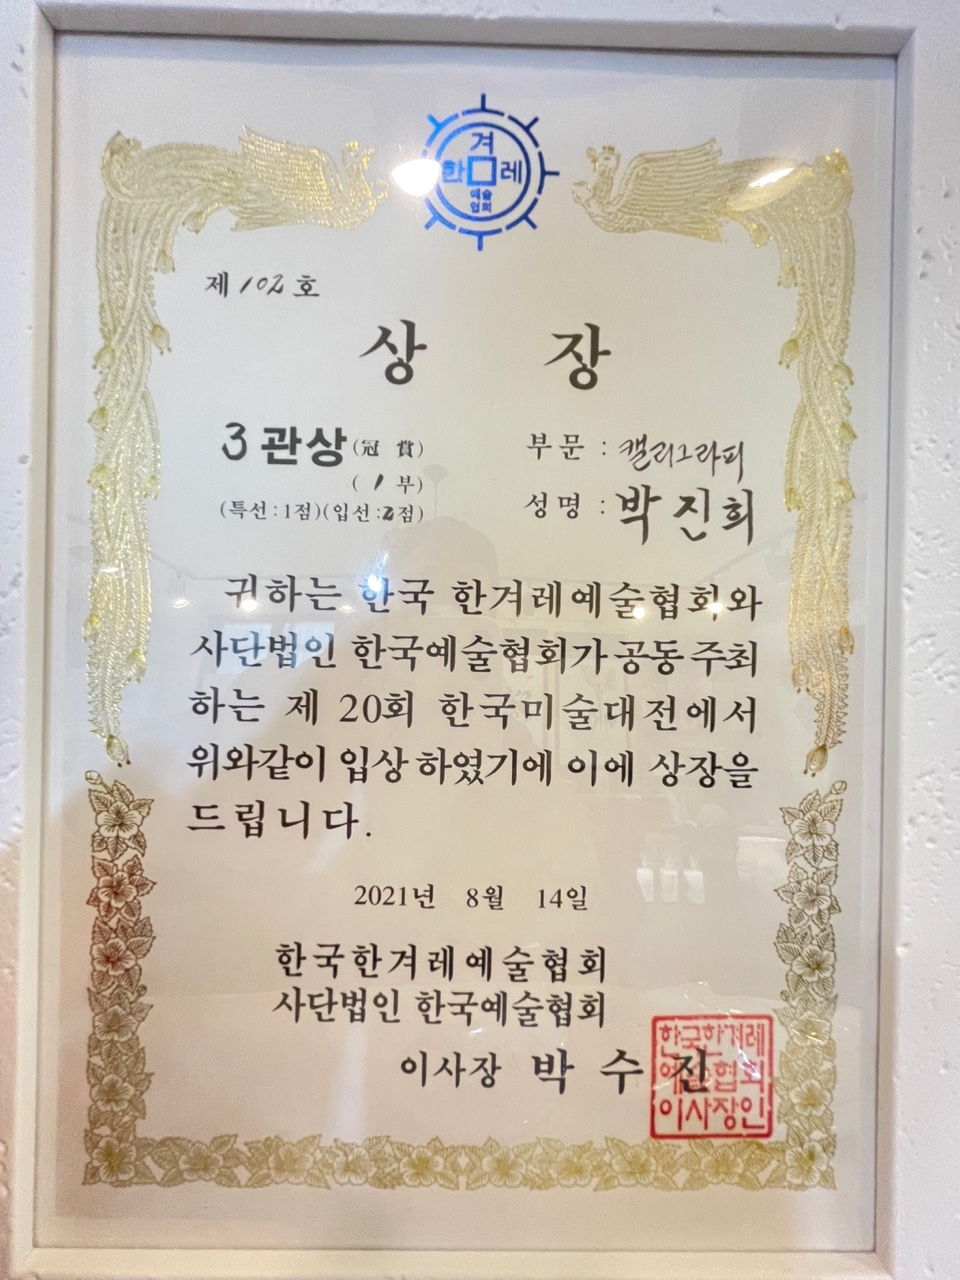 겨
한 레
예술
협회
제 102 호
상 장
3 관상 (冠 賞)
( 1 부)
(특선:1점)(입선:2점)
부문 : 캘리그라피
성명 : 박진희
귀하는 한국 한겨레예술협회와
사단법인 한국예술협회가 공동 주최
하는 제 20회 한국미술대전에서
위와같이 입상 하였기에 이에 상장을
드립니다.
2021년 8월 14일
한국한겨레예술협회
사단법인 한국예술협회
이사장 박 수 진
한국한겨레
예술협회
이사장인